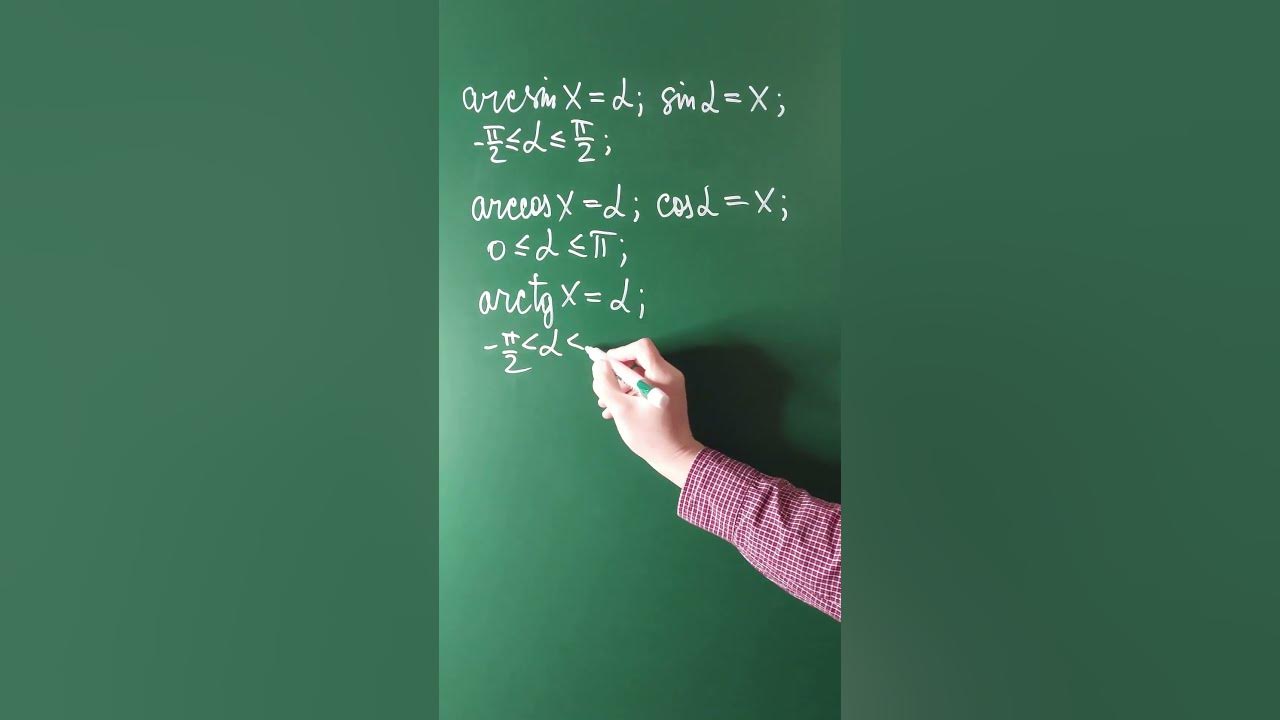 arcsin x = α; sin α = x;
-π/2 ≤ α ≤ π/2;
arccos x = α; cos α = x;
0 ≤ α ≤ π;
arctg x = α;
-π/2 < α <